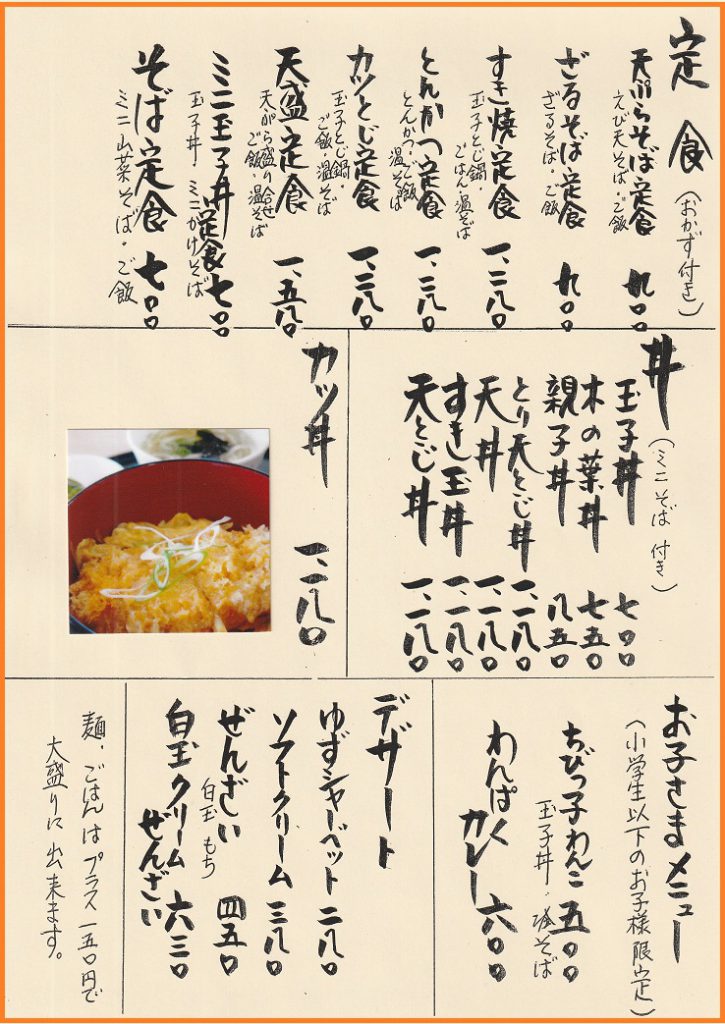 定食（おかず付き）
天ぷらそば定食 九〇〇
えび天そば・ご飯
ざるそば定食 九〇〇
ざるそば・ご飯
すき焼定食 一、二八〇
玉子とじ鍋・ごはん・温そば
とんかつ定食 一、二八〇
とんかつ・ご飯・温そば
カツとじ定食 一、二八〇
玉子とじ鍋・ご飯・温そば
天盛定食 一、五八〇
天ぷら盛り合せ・ご飯・温そば
ミニ玉子丼定食 七〇〇
玉子丼・ミニかけそば
そば定食 七〇〇
ミニ山菜そば・ご飯
丼（ミニそば付き）
玉子丼 七〇〇
木の葉丼 七五〇
親子丼 八五〇
とり天とじ丼 一、一八〇
天丼 一、一八〇
すきし玉丼 一、一八〇
天とじ丼 一、一八〇
カツ丼 一、一八〇
お子さまメニュー
（小学生以下のお子様限定）
ちびっ子わんこ 五〇〇
玉子丼・そば
わんぱくカレー 六〇〇
デザート
ゆずシャーベット 二八〇
ソフトクリーム 三八〇
ぜんざい 四五〇
白玉 もち
白玉クリームぜんざい 六三〇
麺、ごはんはプラス一五〇円で
大盛りに出来ます。